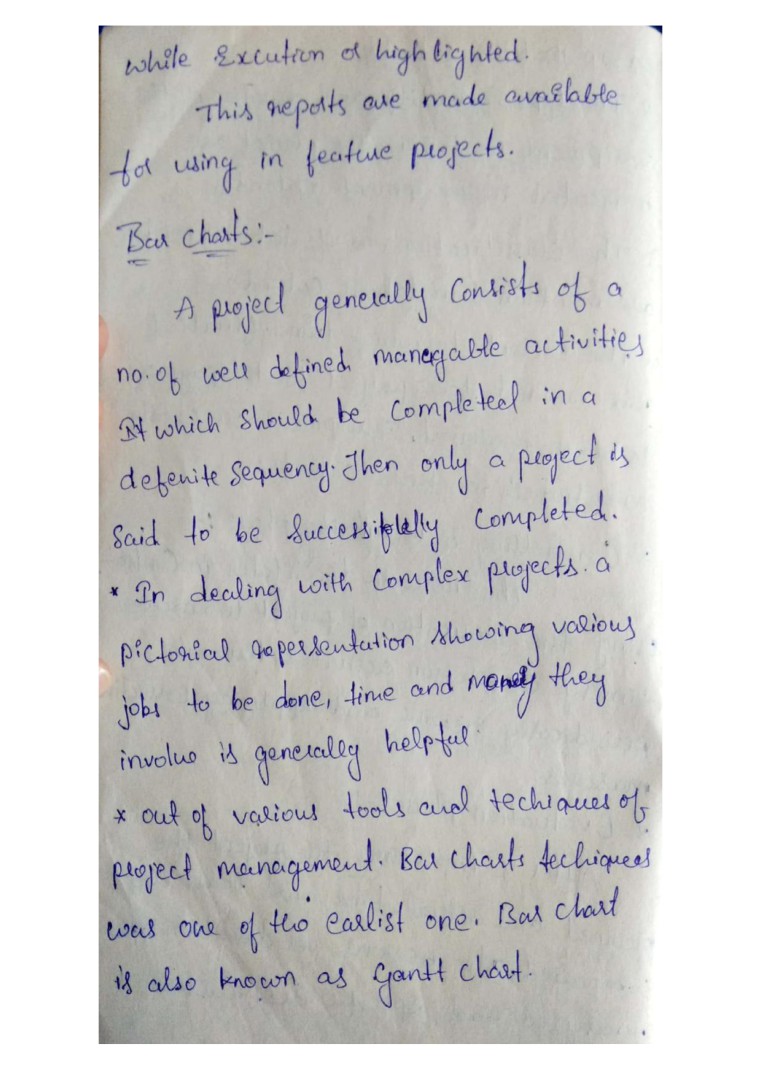 while Excution of highlighted.
This reports are made available
for using in featue projects.
Bar Charts:-
A project generally Consists of a
no. of well defined managable activities
which should be completed in a
defenite Sequency. Then only a project is
said to be successfully completed.
* In dealing with complex projects. a
pictorial repersentation showing various
jobs to be done, time and money they
involue is generally helpful.
* out of various tools and techiques of
project management. Bar charts techiques
was one of the earlist one. Bar chart
is also known as Gantt Chart.